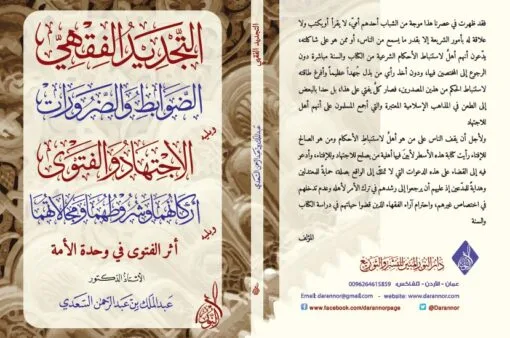 التجديد الفقهي
الضوابط والضرورات
ويليه
الاجتهاد والفتوى
أركانهما وشروطهما ومجالاتهما
ويليه
أثر الفتوى في وحدة الأمة
الأستاذ الدكتور
عبدالملك بن عبدالرحمن السعدي
التجديد الفقهي
عبدالملك بن عبدالرحمن السعدي
فقد ظهرت في عصرنا هذا موجة من الشباب أحدهم أمي، لا يقرأ أو يكتب ولا
علاقة له بأمور الشريعة إلا بقدر ما يسمع من الناس، أو ممن هو على شاكلته،
يدّعون أنهم أهل لاستنباط الأحكام الشرعية من الكتاب والسنة مباشرة دون
الرجوع إلى المختصين فيها، ودون أخذ رأي من بذل جهداً عظيماً وأفرغ طاقته
لاستنباط الحكم من هذين المصدرين، فصار كلٌّ يفتي على هواه، بل حدا بالبعض
إلى الطعن في المذاهب الإسلامية المعتبرة والتي أجمع المسلمون على أنهم أهل
للاجتهاد
ولأجل أن يقف الناس على من هو أهل لاستنباط الأحكام ومن هو الصالح
للإفتاء، رأيت كتابة هذه الأسطر لأبيّن فيها أهلية من يصلح للاجتهاد وللإفتاء، وأدعو
فيه إلى القضاء على هذه الدعوات التي لا تمتّ إلى الواقع بصلة، حماية للمعتدلين
وهداية للمدّعين إذ عليهم أن يرجعوا إلى رشدهم في ترك الأمر لأهله وعدم تدخلهم
في اختصاص غيرهم، واحترام آراء الفقهاء الذين قضوا حياتهم في دراسة الكتاب
والسنة
المؤلف
دار النور المبين للنشر والتوزيع
عمان - الأردن - تلفاكس: 0096264615859
Email: darannor@gmail.com - website: www.darannor.com
facebook.com/darannorpage
@Darannor